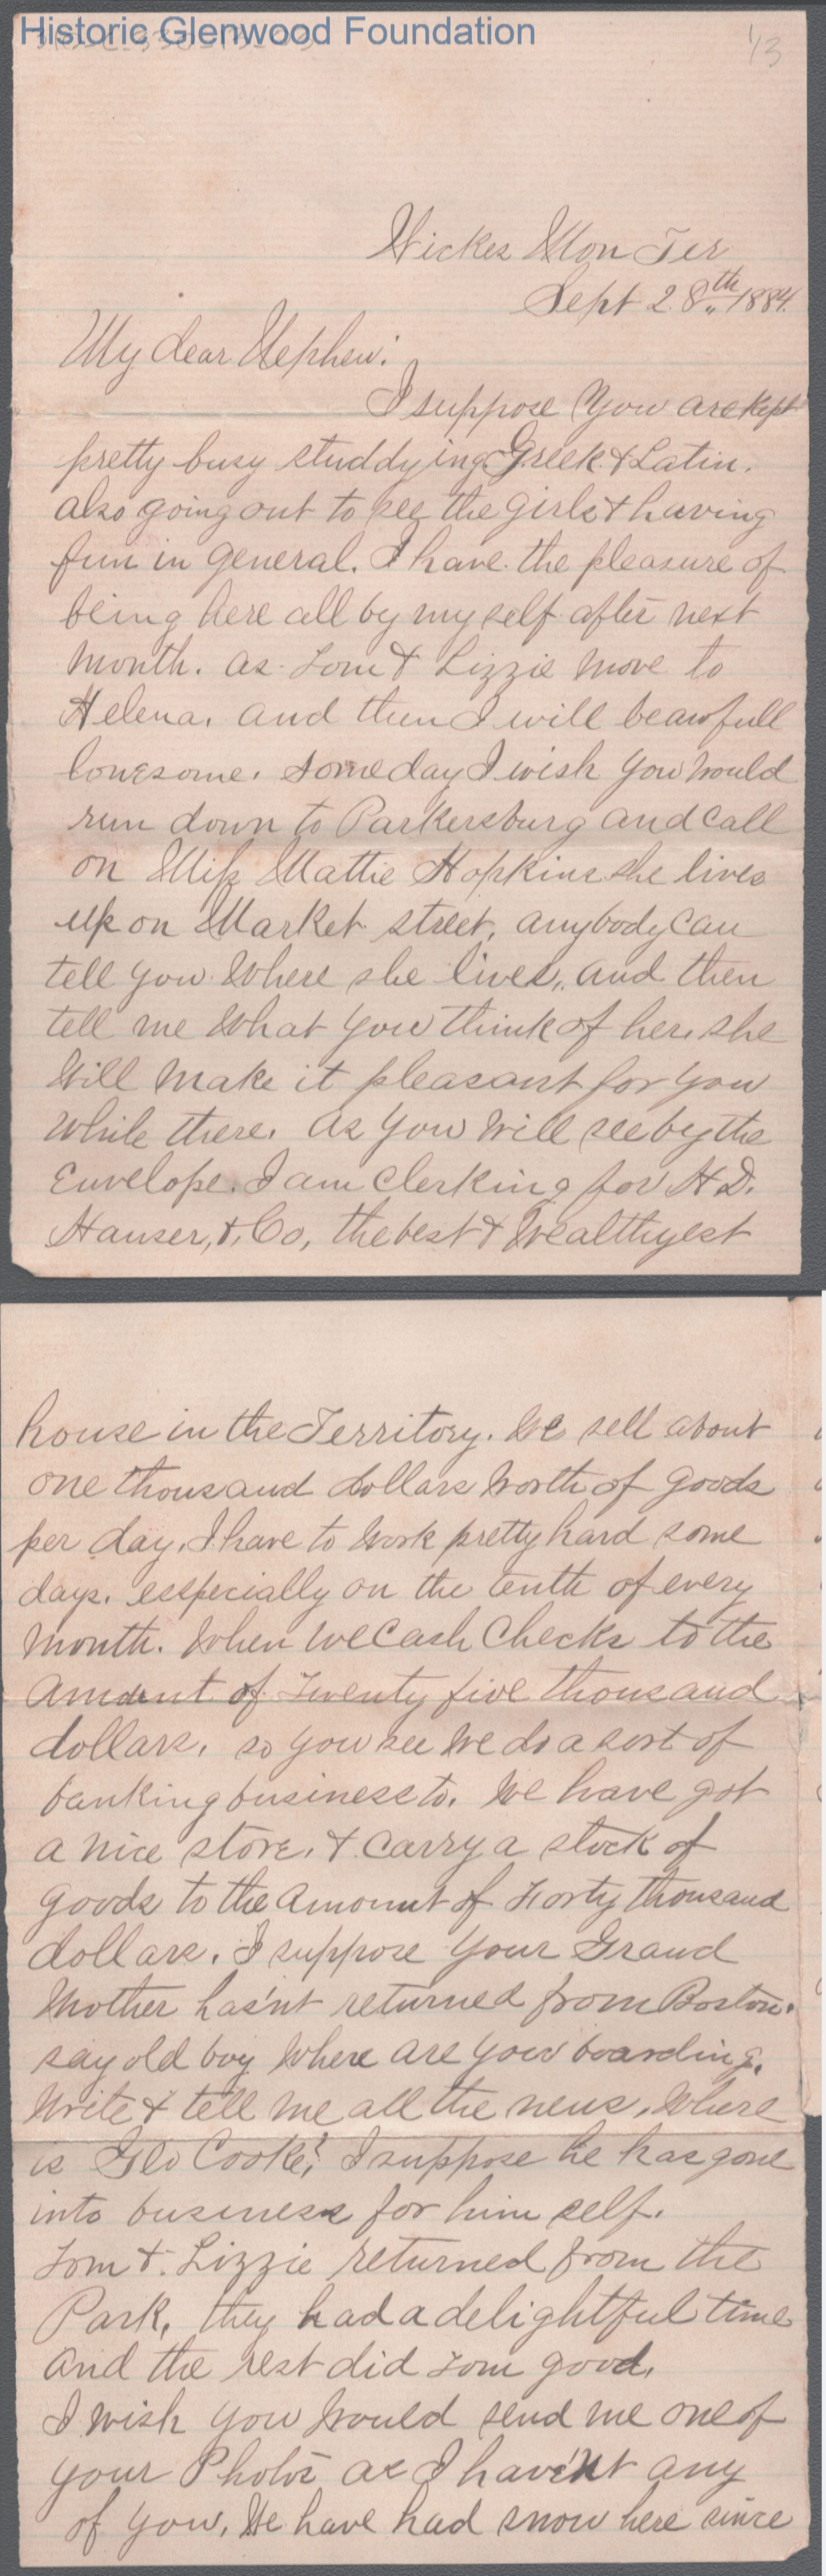 Historic Glenwood Foundation
1/3
Wickes Mon Ter
Sept 28th 1884.
My dear Nephew:
I suppose you are kept
pretty busy studdying Greek & Latin.
also going out to see the girls & having
fun in general. I have the pleasure of
being here all by myself after next
month. as Tom & Lizzie move to
Helena. and then I will be awfull
lonesome. some day I wish you would
run down to Parkersburg and call
on Miss Mattie Hopkins she lives
up on Market street, anybody can
tell you where she lives, and then
tell me what you think of her. she
will make it pleasant for you
while there. as you will see by the
Envelope. I am clerking for H.D.
Hauser, & Co, the best & wealthyest
house in the Territory. We sell about
one thousand dollars worth of goods
per day. I have to work pretty hard some
days. esspecially on the tenth of every
month. when we cash checks to the
amount of Twenty five thousand
dollars. so you see we do a sort of
banking business to. We have got
a nice store. & carry a stock of
goods to the amount of Forty thousand
dollars. I suppose your Grand
Mother has'nt returned from Boston.
say old boy where are you boarding.
write & tell me all the news. where
is Geo Cooke? I suppose he has gone
into business for him self.
Tom & Lizzie returned from the
Park, they had a delightful time
and the rest did Tom good.
I wish you would send me one of
your Photo's as I have'nt any
of you. We have had snow here since